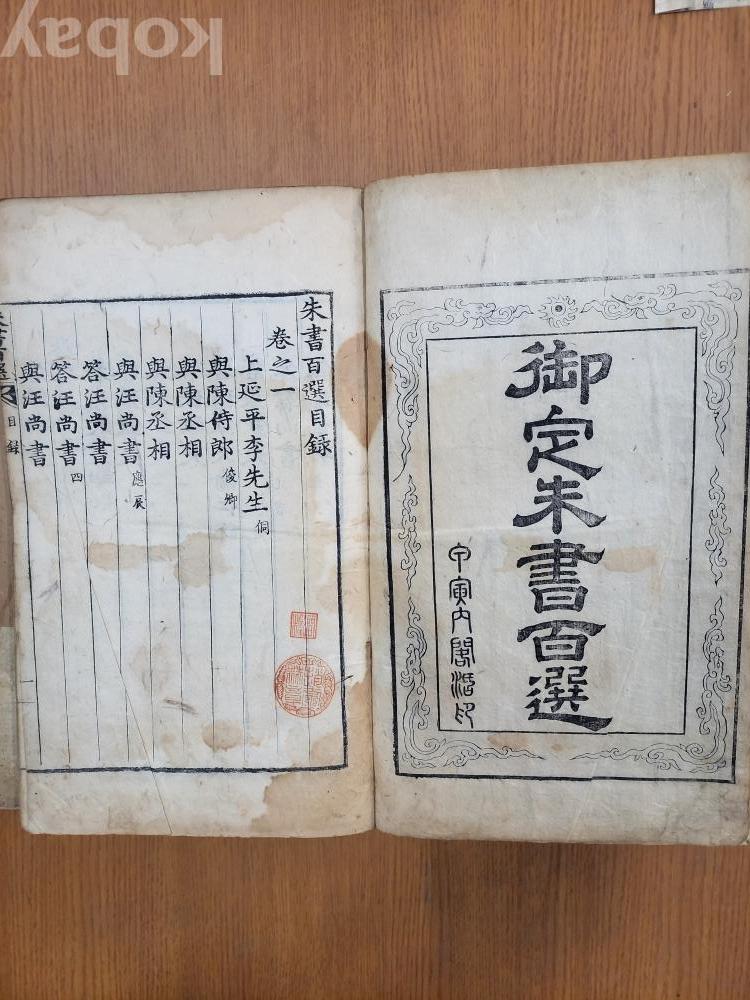 御定朱書百選
甲寅內閣活印
朱書百選目録
卷之一
上延平李先生 侗
與陳侍郎 俊卿
與陳丞相
與陳丞相
與汪尚書 應辰
答汪尚書
答汪尚書 四
與汪尚書
朱書百選 目録
kobay